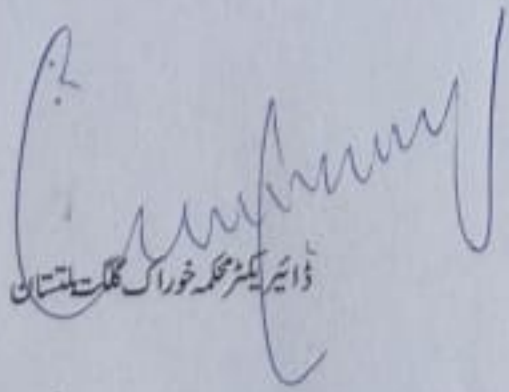 ڈائیریکٹر محکمہ خوراک گلگت بلتستان